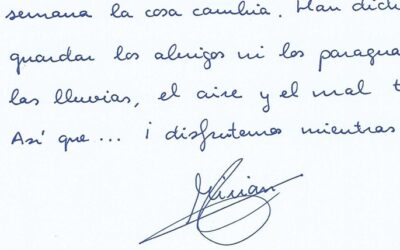 semana la cosa cambia. Han dich
guardar los abrigos ni los paragua
las lluvias, el aire y el mal t
Así que... ¡ disfrutemos mientras
Mirian